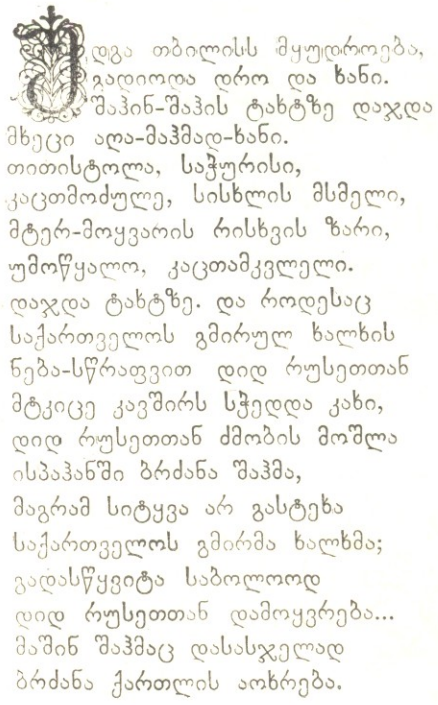 იდგა თბილისს მყუდროება,
გადიოდა დრო და ხანი.
შაჰინ-შაჰის ტახტზე დაჯდა
მხეცი აღა-მაჰმად-ხანი.
თითისტოლა, საჭურისი,
კაცთმოძულე, სისხლის მსმელი,
მტერ-მოყვარის რისხვის ზარი,
უმოწყალო, კაცთამკვლელი.
დაჯდა ტახტზე. და როდესაც
საქართველოს გმირულ ხალხის
ნება-სწრაფვით დიდ რუსეთთან
მტკიცე კავშირს სჭედდა კახი,
დიდ რუსეთთან ძმობის მოშლა
ისპაჰანში ბრძანა შაჰმა,
მაგრამ სიტყვა არ გასტეხა
საქართველოს გმირმა ხალხმა;
გადასწყვიტა საბოლოოდ
დიდ რუსეთთან დამოყვრება...
მაშინ შაჰმაც დასასჯელად
ბრძანა ქართლის აოხრება.